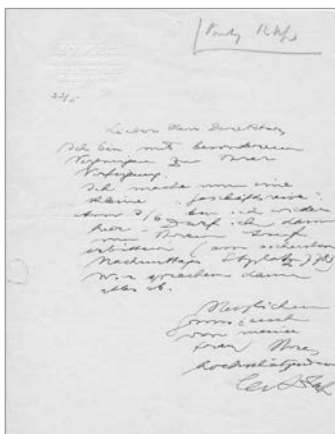 22/5
Lieber Herr Direktor,
Ich bin mit besonderem
Vergnügen zu Ihrer
Verfügung.
Ich mache nun eine
kleine "Geschäftsreise".
Am 3/6 bin ich wieder
hier – Darf ich dann
um Ihren Anruf
erbitten (am sichersten
Nachmittags
Wir sprechen dann
alles ab.
Herzlichen
von meiner
Frau Ihre
hochschätzenden